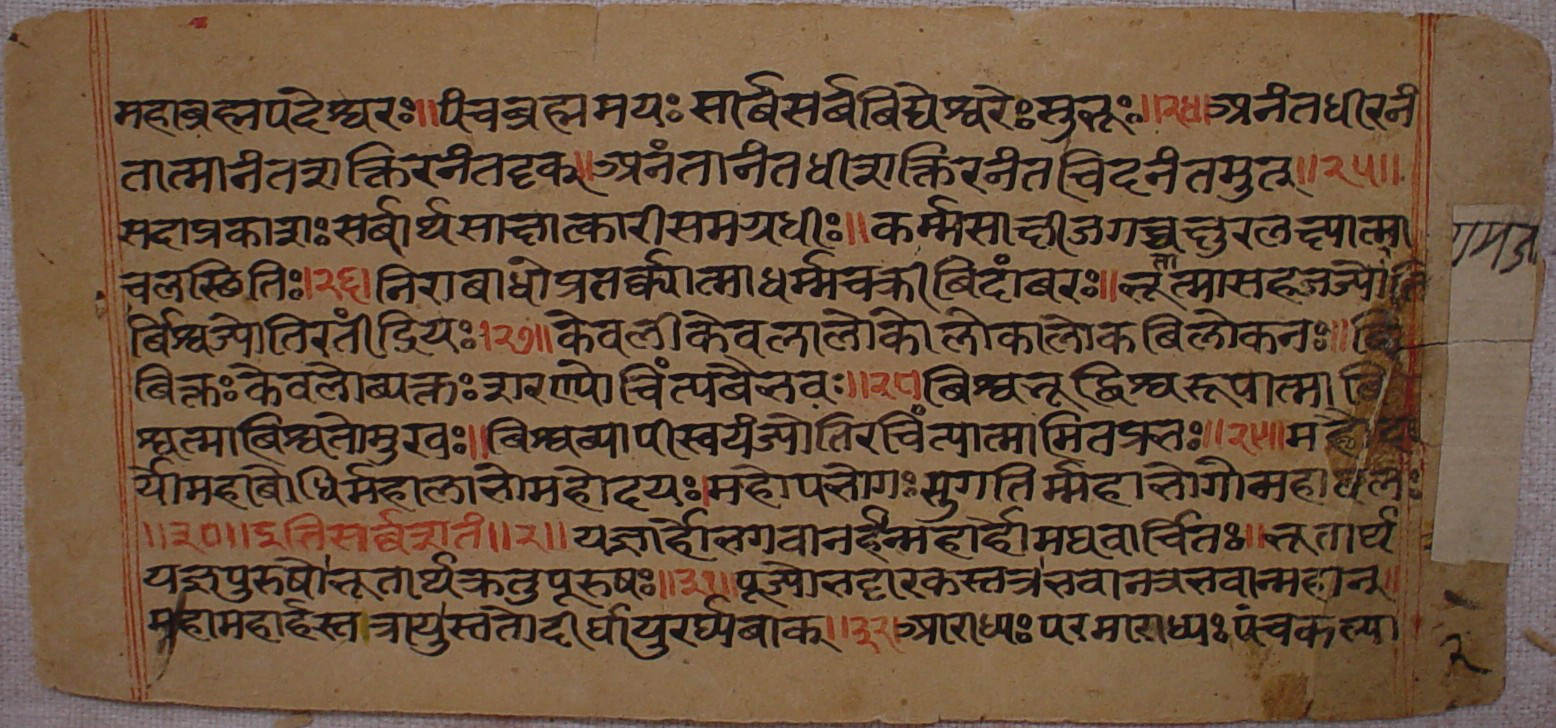 महाब्रह्मपदेश्वरः॥पंचब्रह्ममयः सार्बसर्बबिद्येश्वरेःसुभूः॥२४॥अनंतधीरनं
तात्मानंतशक्तिरनंतदृक्॥अनंतानंतधीशक्तिरनंतचिदनंतमुत्॥२५॥
सदाप्रकाशःसर्बार्थसाक्षात्कारीसमग्रधीः॥कर्म्मसाक्षीजगच्चक्षुरलक्ष्यात्मा
चलस्छितिः॥२६॥निराबाधोप्रतर्क्क्यात्माधर्म्मचक्रीबिदांबरः॥भूतात्मासहजज्योति
र्बिश्वज्योतिरतींद्रियः॥२७॥केवलीकेवलालोकोलोकालोकबिलोकनः॥बि
बिक्तःकेवलोब्यक्तःशरण्योचिंत्यबैभवः॥२८॥बिश्वभूद्विश्वरूपात्माबि
श्वत्माबिश्वतोमुखः॥बिश्वब्यापीस्वयंज्योतिरचिंत्यात्मामितप्रभः॥२९॥महौदा
र्योमहाबोधिर्महालाभोमहोदयः॥महोपभोगःसुगतिर्म्महाभोगोमहाबलः
॥३०॥इतिसर्बज्ञशतं॥२॥यज्ञार्होभगवानर्हन्महार्होमघवार्चितः॥भूतार्थ
यज्ञपुरुषोभूतार्थक्रतुपूरुषः॥३१॥पूज्योभट्टारकस्तत्रभवानत्रभवान्महान्॥
महामहार्हस्तत्रायुस्ततोदीर्घायुरर्घ्यबाक्॥३२॥आराध्यःपरमाराध्यःपंचकल्या
२